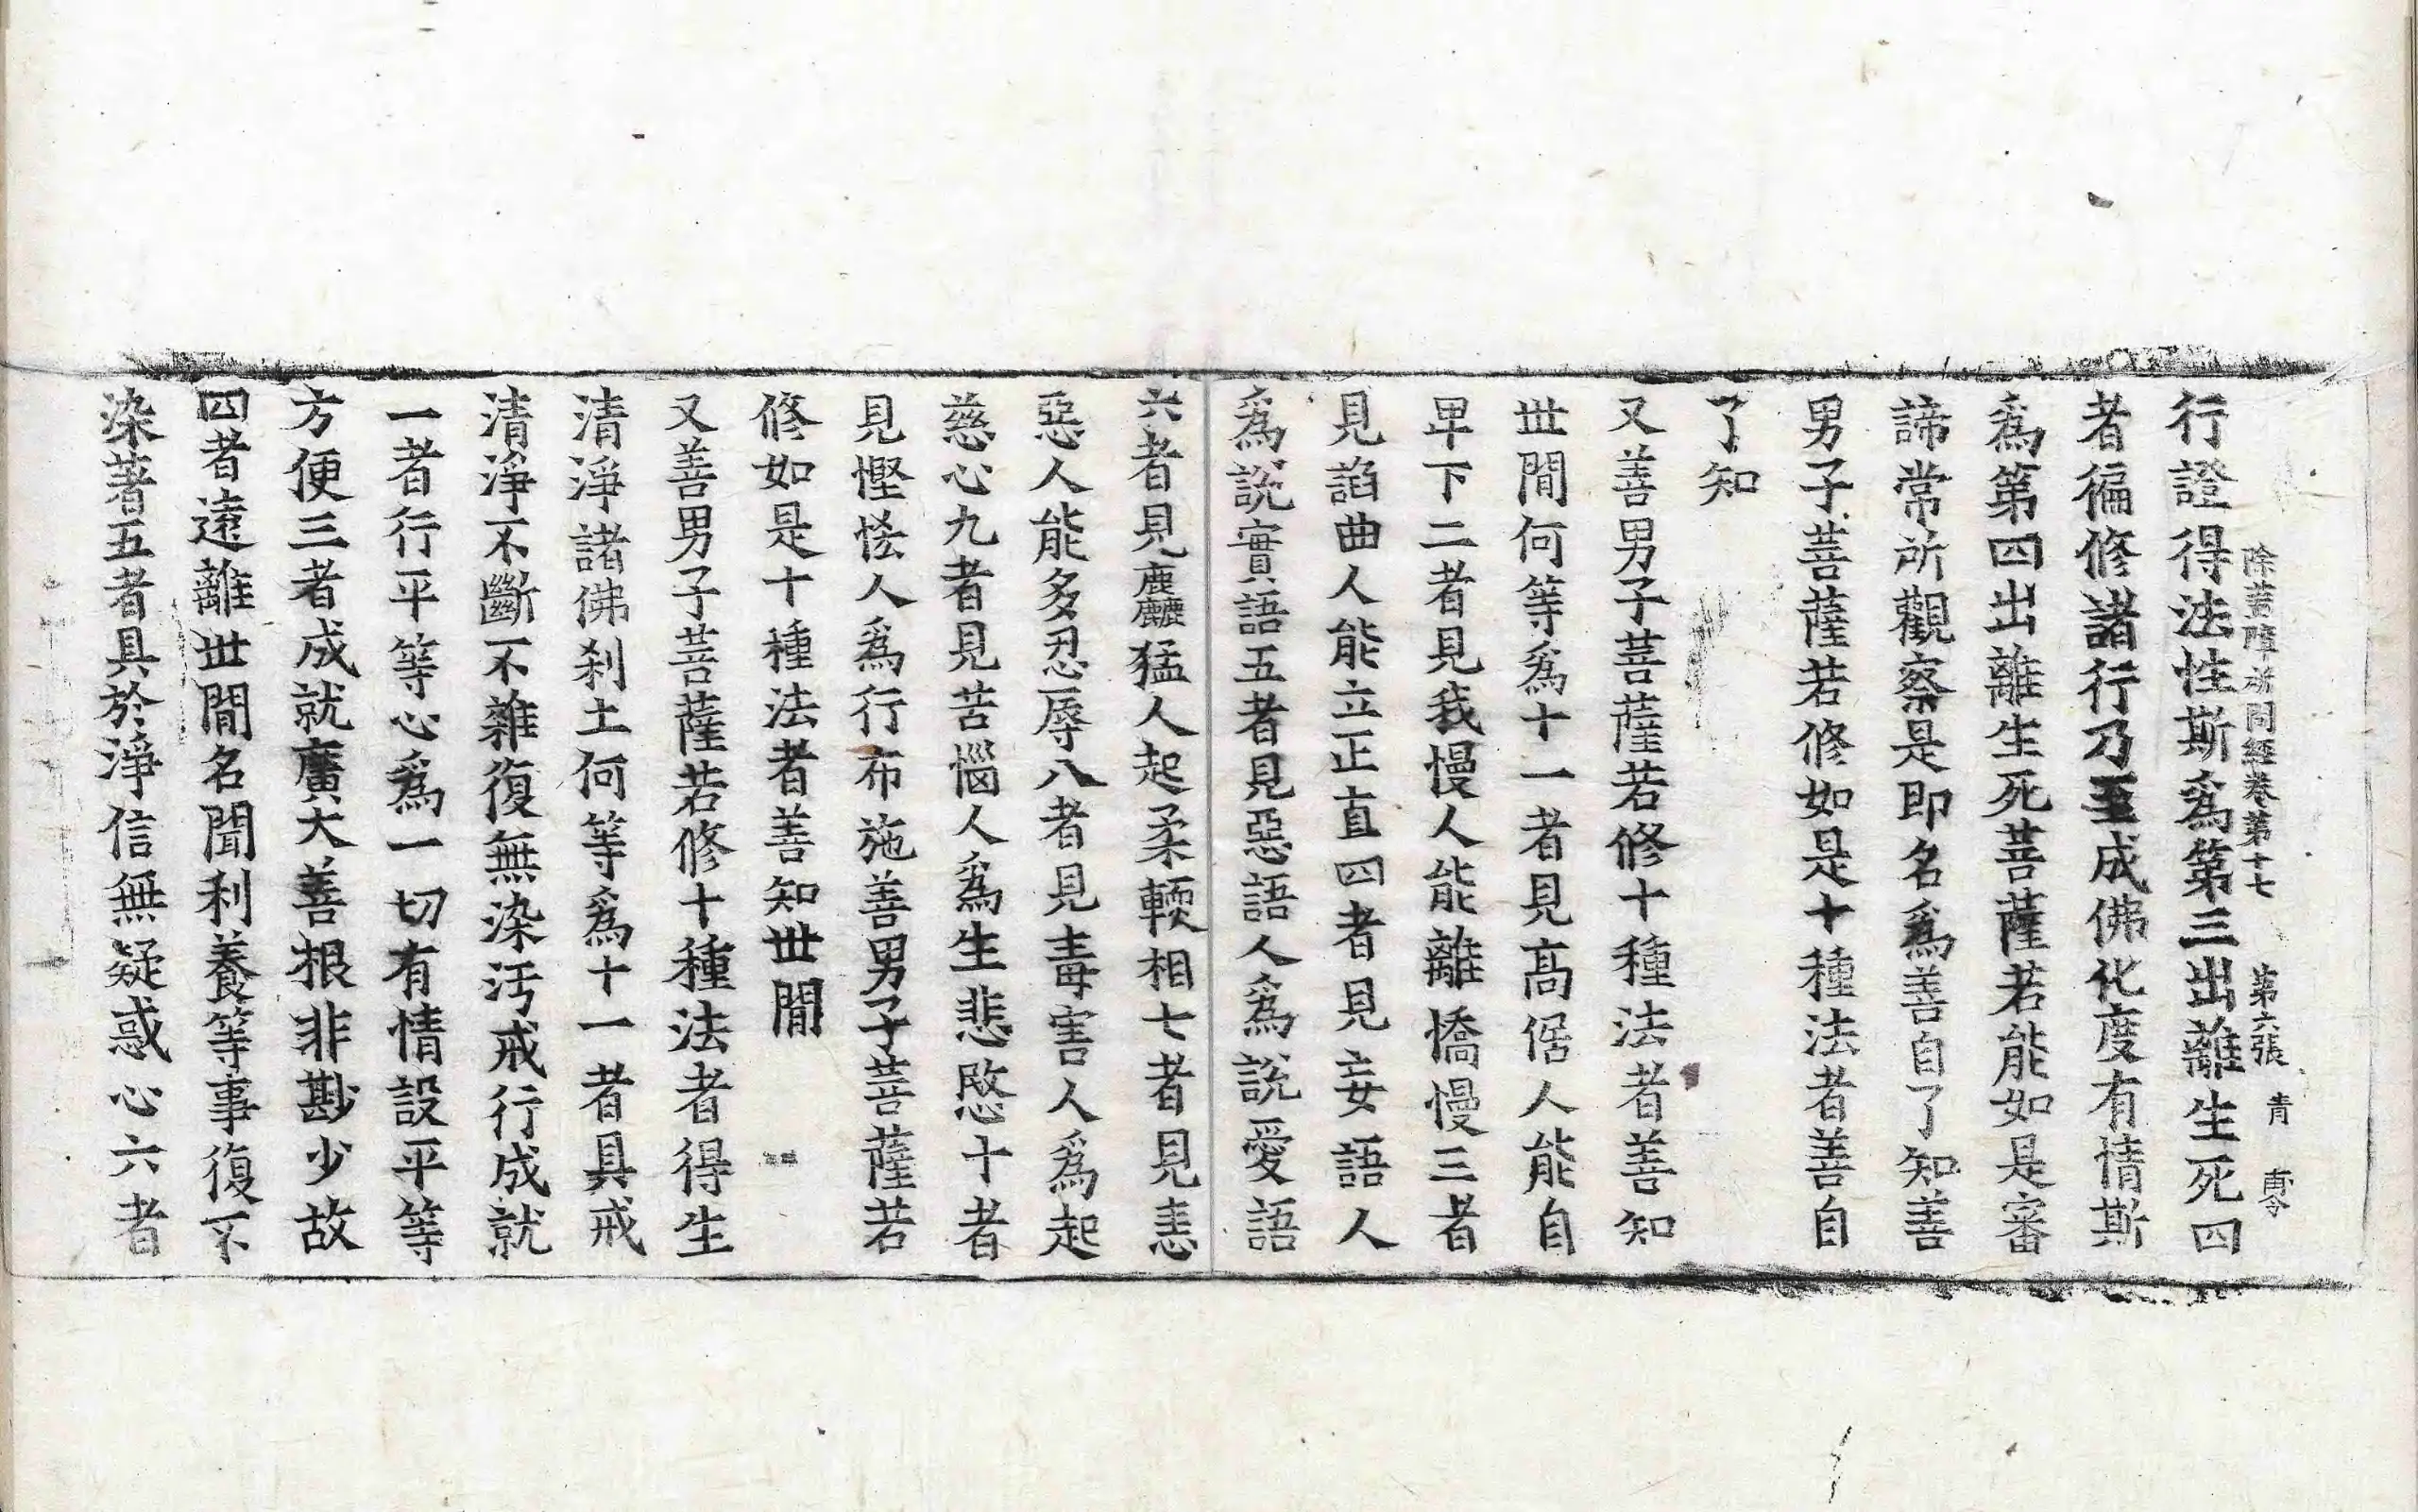 行證得法性斯爲第三出離生死四
除蓋障所問經卷第十七 第六張 青
者徧修諸行乃至成佛化度有情斯
爲第四出離生死菩薩若能如是審
諦常所觀察是即名爲善自了知善
男子菩薩若修如是十種法者善自
了知
又善男子菩薩若修十種法者善知
世間何等爲十一者見髙倨人能自
卑下二者見我慢人能離憍慢三者
見諂曲人能立正直四者見妄語人
爲說實語五者見惡語人爲說愛語
六者見麤猛人起柔輭相七者見恚
惡人能多忍辱八者見毒害人爲起
慈心九者見苦惱人爲生悲愍十者
見慳悋人爲行布施善男子菩薩若
修如是十種法者善知世間
又善男子菩薩若修十種法者得生
清淨諸佛刹土何等爲十一者具戒
清淨不斷不雜復無染汚戒行成就
一者行平等心爲一切有情設平等
方便三者成就廣大善根非尠少故
四者遠離世間名聞利養等事復不
染著五者具於淨信無疑惑心六者